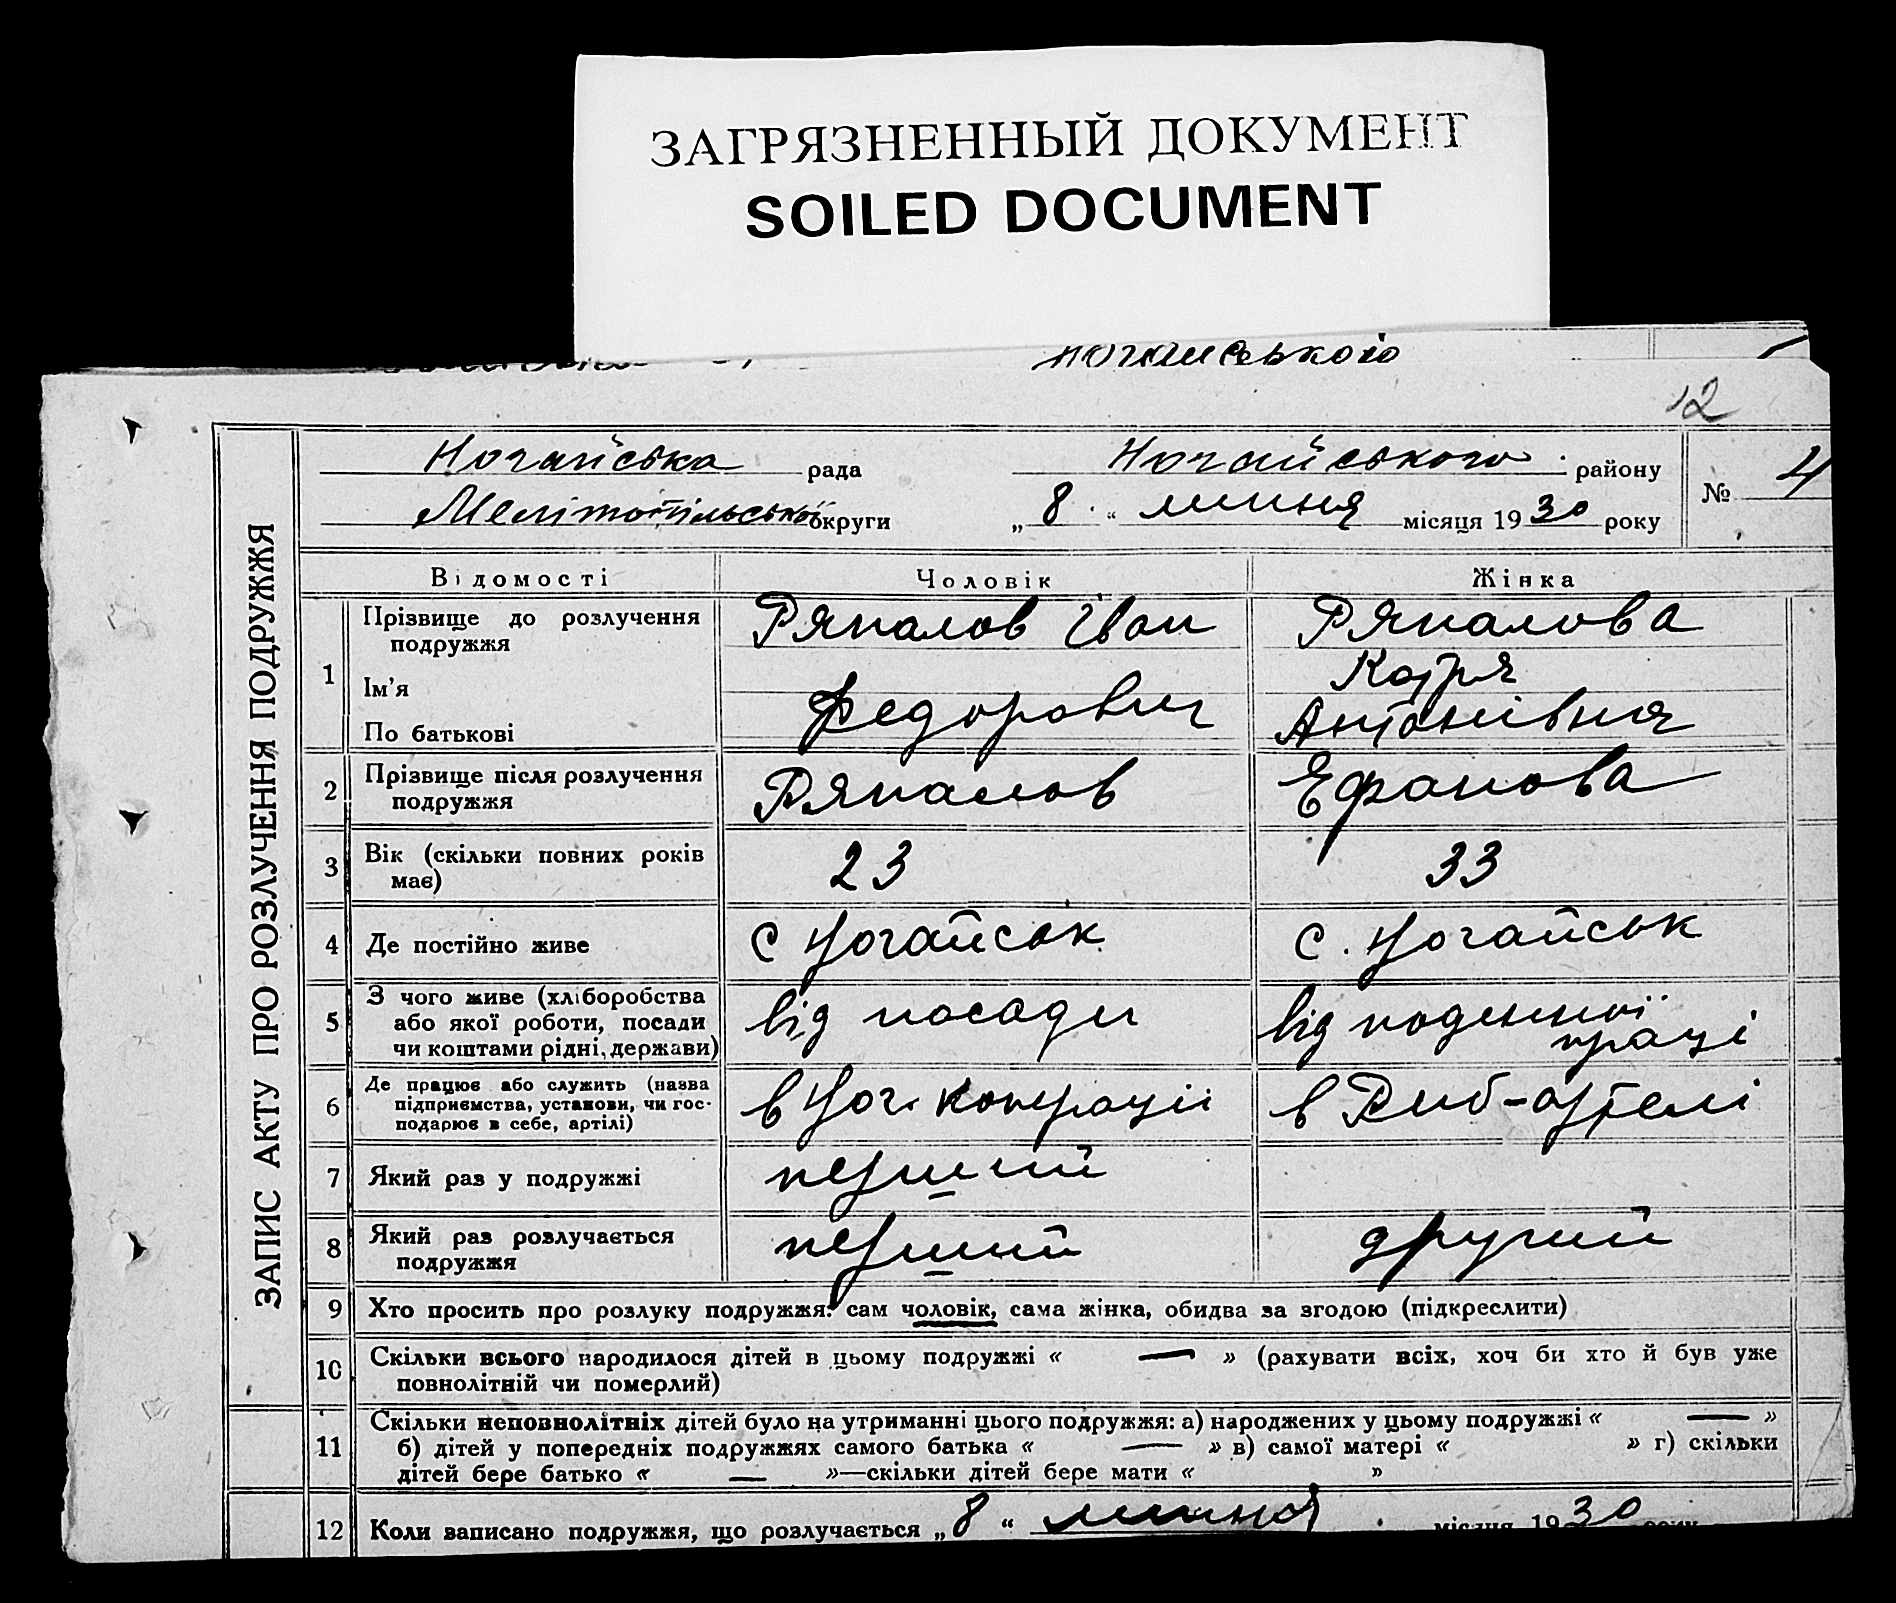 ЗАГРЯЗНЕННЫЙ ДОКУМЕНТ
SOILED DOCUMENT
ногайського
12
ЗАПИС АКТУ ПРО РОЗЛУЧЕННЯ ПОДРУЖЖЯ
Ногайська рада Ногайського району № 4
Мелітопільської округи „ 8 “ липня місяця 1930 року
Відомості Чоловік Жінка
1 Прізвище до розлучення подружжя Ряпалов Іван Ряпалова
Ім'я Катря
По батькові Федорович Антонівна
2 Прізвище після розлучення подружжя Ряпалов Ефанова
3 Вік (скільки повних років має) 23 33
4 Де постійно живе с Ногайськ с. Ногайськ
5 З чого живе (хліборобства або якої роботи, посади чи коштами рідні, держави) від посади від поденної праці
6 Де працює або служить (назва підприємства, установи, чи господарює в себе, артілі) в Ног. коперації в Риб-артелі
7 Який раз у подружжі перший
8 Який раз розлучається подружжя перший другий
9 Хто просить про розлуку подружжя: сам чоловік, сама жінка, обидва за згодою (підкреслити)
10 Скільки всього народилося дітей в цьому подружжі « — » (рахувати всіх, хоч би хто й був уже
повнолітній чи померлий)
11 Скільки неповнолітніх дітей було на утриманні цього подружжя: а) народжених у цьому подружжі « — »
б) дітей у попередніх подружжях самого батька « — » в) самої матері « » г) скільки
дітей бере батько « — »—скільки дітей бере мати « »
12 Коли записано подружжя, що розлучається „ 8 “ липня місяця 1930 року